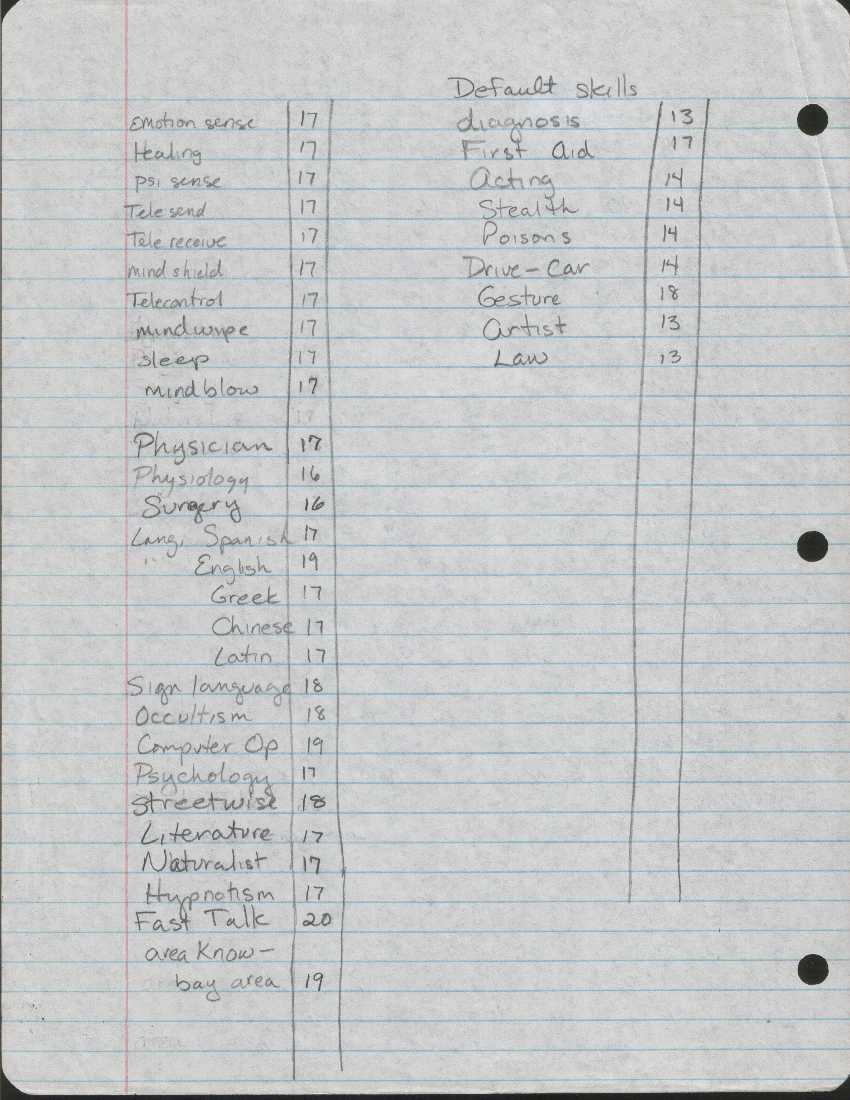 Emotion sense 17
Healing 17
psi sense 17
Tele send 17
Tele receive 17
mind shield 17
Telecontrol 17
mindwipe 17
sleep 17
mindblow 17
17
Physician 17
Physiology 16
Surgery 16
Lang, Spanish 17
" English 19
Greek 17
Chinese 17
Latin 17
Sign language 18
Occultism 18
Computer Op 19
Psychology 17
Streetwise 18
Literature 17
Naturalist 17
Hypnotism 17
Fast Talk 20
area Know-
bay area 19
Default skills
diagnosis 13
First Aid 17
Acting 14
Stealth 14
Poisons 14
Drive-Car 14
Gesture 18
Artist 13
Law 13